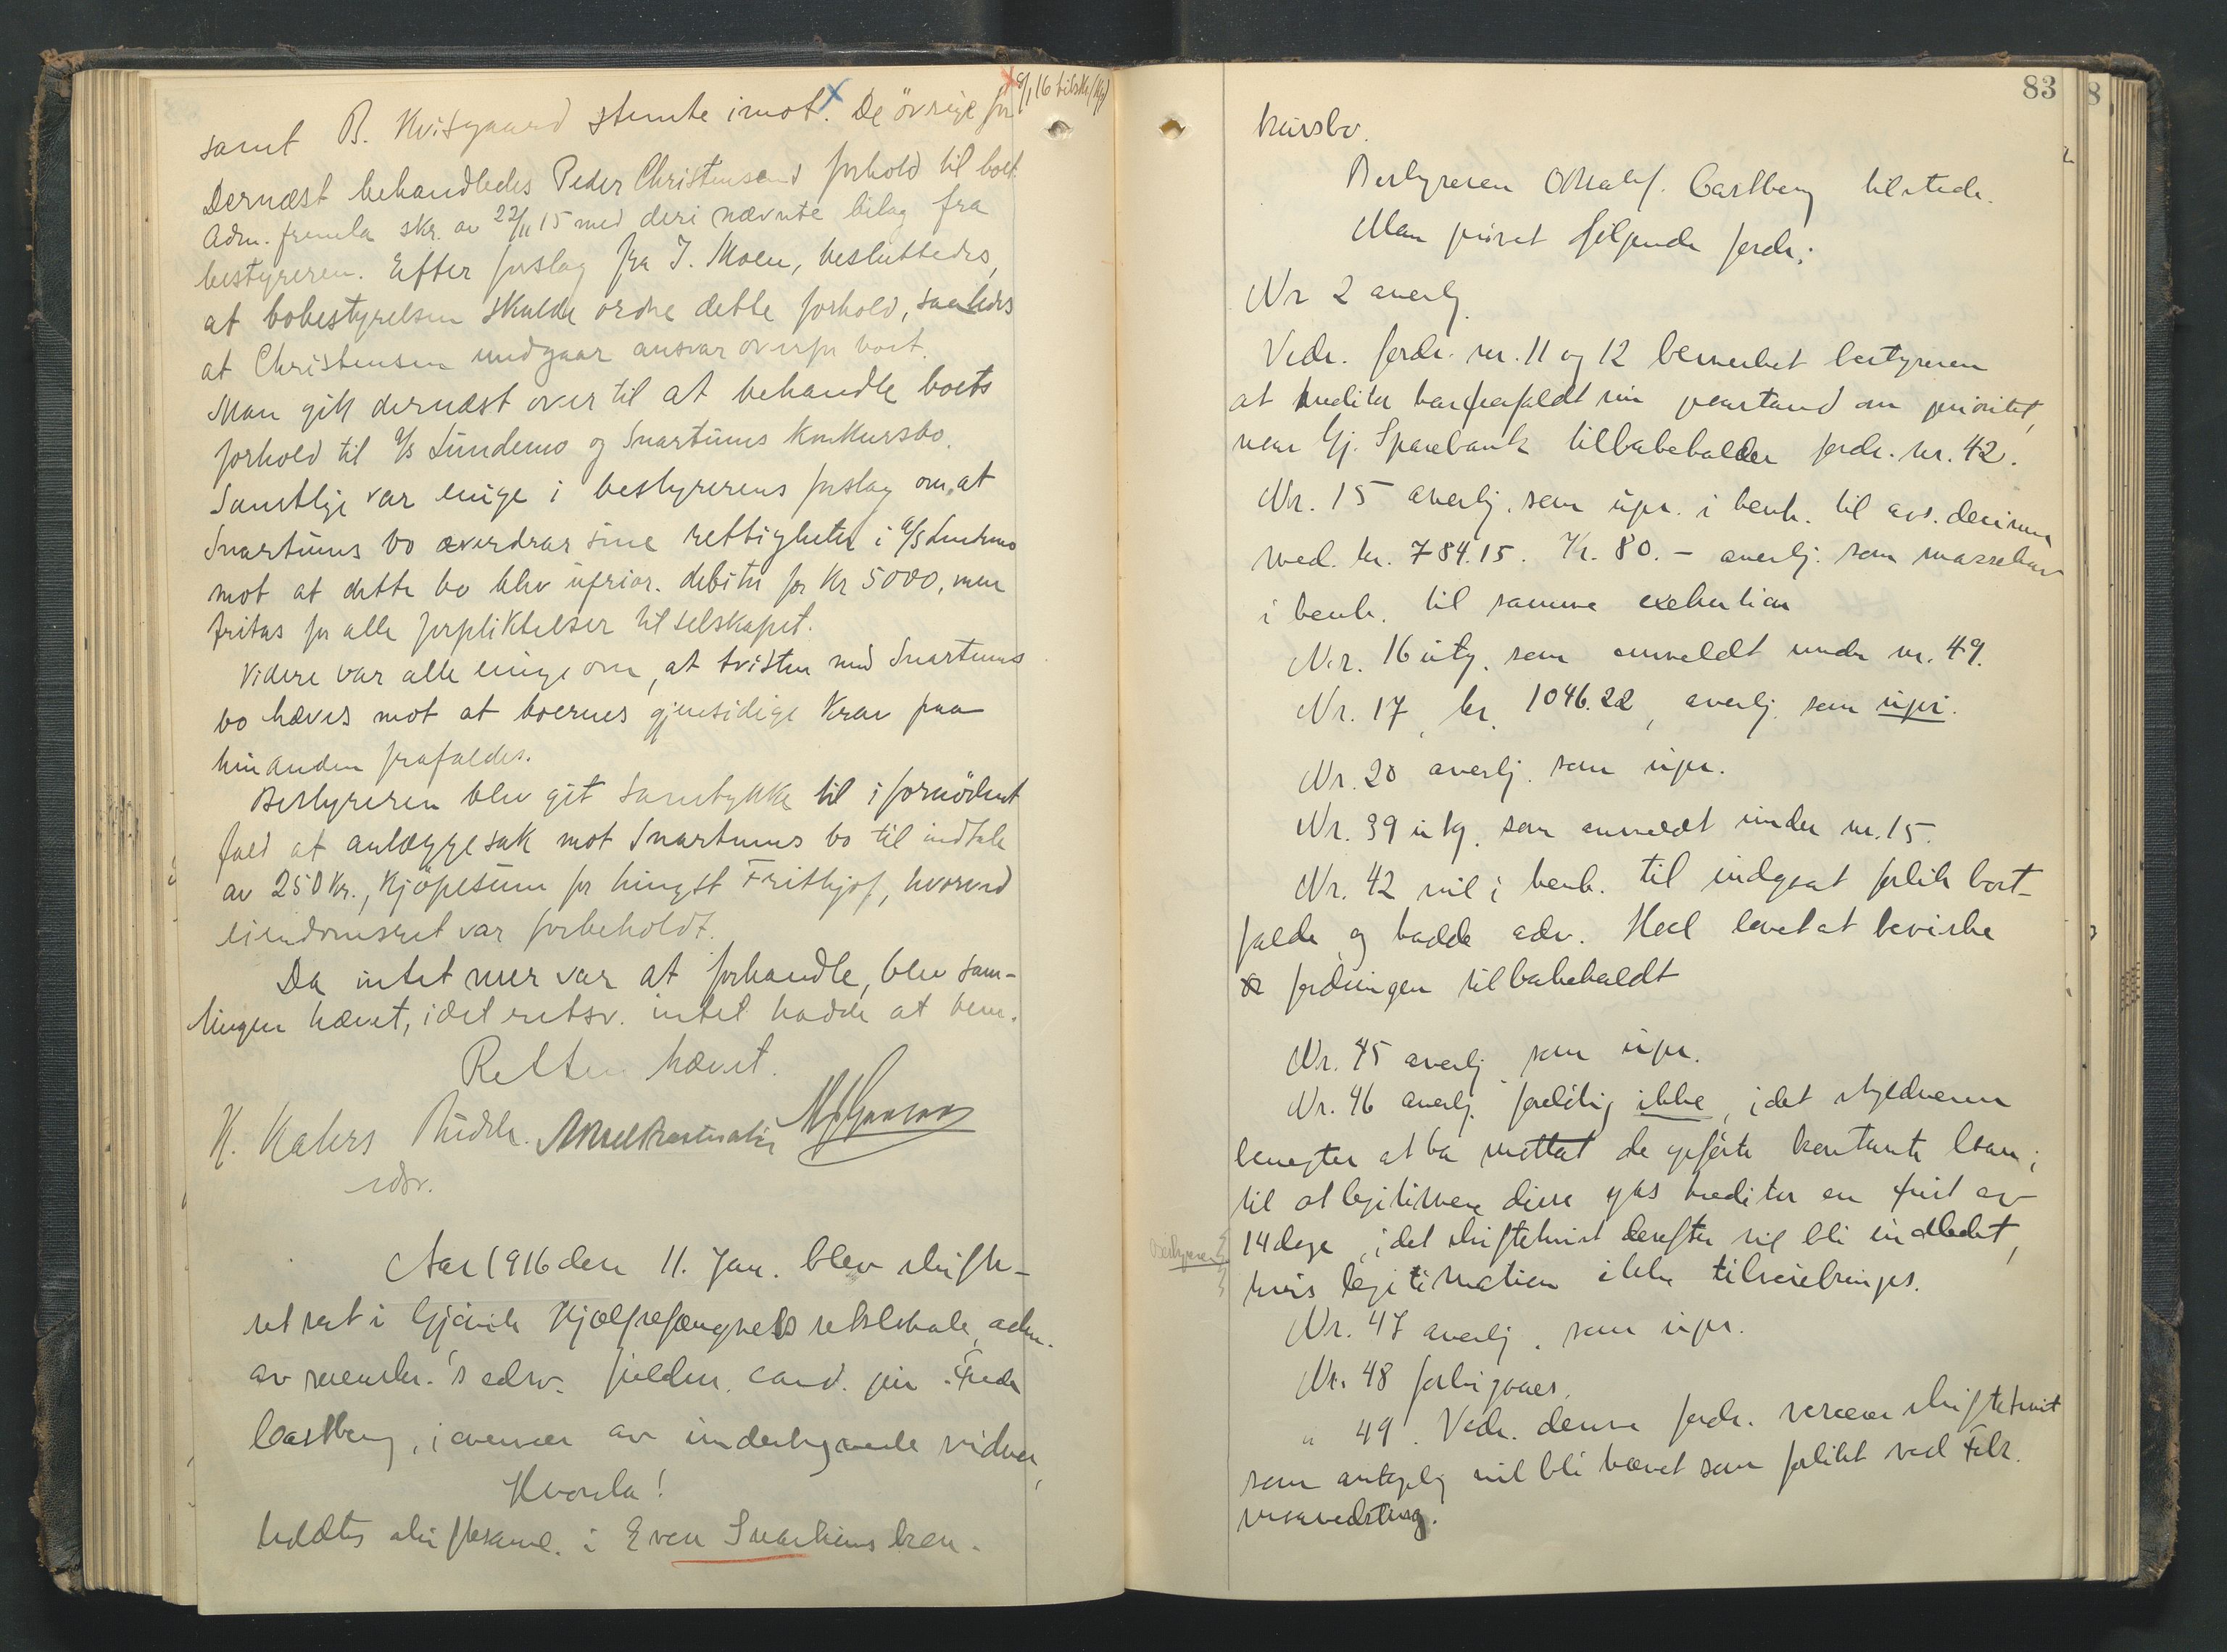 samt B. Kvisgaard stemte imot. De øvrige for
Dernæst behandledes Peder Christensens forhold til boet.
Adm. fremla skr. av 22/11 15 med deri nævnte bilag fra
bestyreren. Efter forslag fra J. Moen, besluttedes,
at bobestyrelsen skulde ordne dette forhold, saaledes
at Christensen undgaar ansvar overfor boet.
Man gik dernæst over til at behandle boets
forhold til A/S Lundemo og Snartums konkursbo.
Samtlige var enige i bestyrerens forslag om, at
Snartums bo overdrar sine rettigheter i A/S Lundemo
mot at dette bo blev uprior. debitor for Kr 5000, men
fritas for alle forpliktelser til selskapet.
Videre var alle enige om, at tvisten med Snartums
bo hæves mot at boernes gjensidige krav paa
hinanden frafaldes.
Bestyreren blev git samtykke til i fornødent
fald at anlægge sak mot Snartums bo til indtale
av 250 Kr., Kjøpesum for hingst Frithjof, hvorved
eiendomsret var forbeholdt.
Da intet mer var at forhandle, blev sam-
lingen hævet, idet retsv. intet hadde at bem.
Retten hævet.
H. Kahrs
edsv.
Aar 1916 den 11. Jan. blev skifte-
ret sat i Gjøvik Hjælpefængsels retslokale, adm.
av sorenskr.'s edsv. fuldm. cand. jur. Fredr
Castberg, i overvær av underskrevne vidner,
Hvorda!
holdtes skiftesaml. i Even Snartums kon-
83
kursbo.
Bestyreren O.r.sakf. Castberg tilstede.
Man prøvet følgende fordr.:
Nr 2 anerkj.
Vedr. fordr. nr. 11 og 12 bemerket bestyreren
at kreditor har frafaldt sin paastand om prioritet,
naar Gj. Sparebank tilbakeholder fordr. nr. 42.
Nr. 15 anerkj. som upr. i henh. til avs. decision
med kr. 784.15. Kr. 80.- anerkj. som massekrav
i henh. til samme exekution
Nr. 16 utg. som anmeldt under nr. 49.
Nr. 17, kr. 1046.22, anerkj. som upr.
Nr. 20 anerkj. som upr.
Nr. 39 utg. som anmeldt under nr. 15.
Nr. 42 vil i henh. til indgaat forlik bort-
falde, og hadde adv. Heel lovet at bevirke
fordringen tilbakeholdt
Nr. 45 anerkj. som upr.
Nr. 46 anerkj. foreløbig ikke, idet skyldneren
benegter at ha mottat de opførte kontante laan;
til at legitimere disse gas kreditor en frist av
Bestyreren
14 dage, idet skiftetvist derefter vil bli indledet,
hvis legitimation ikke tilveiebringes.
Nr. 47 anerkj. som upr.
Nr. 48 forbigaaes.
" 49. Vedr. denne fordr. verserer skiftetvist
som antagelig vil bli hævet som forlikt ved Febr.
maanedsting.